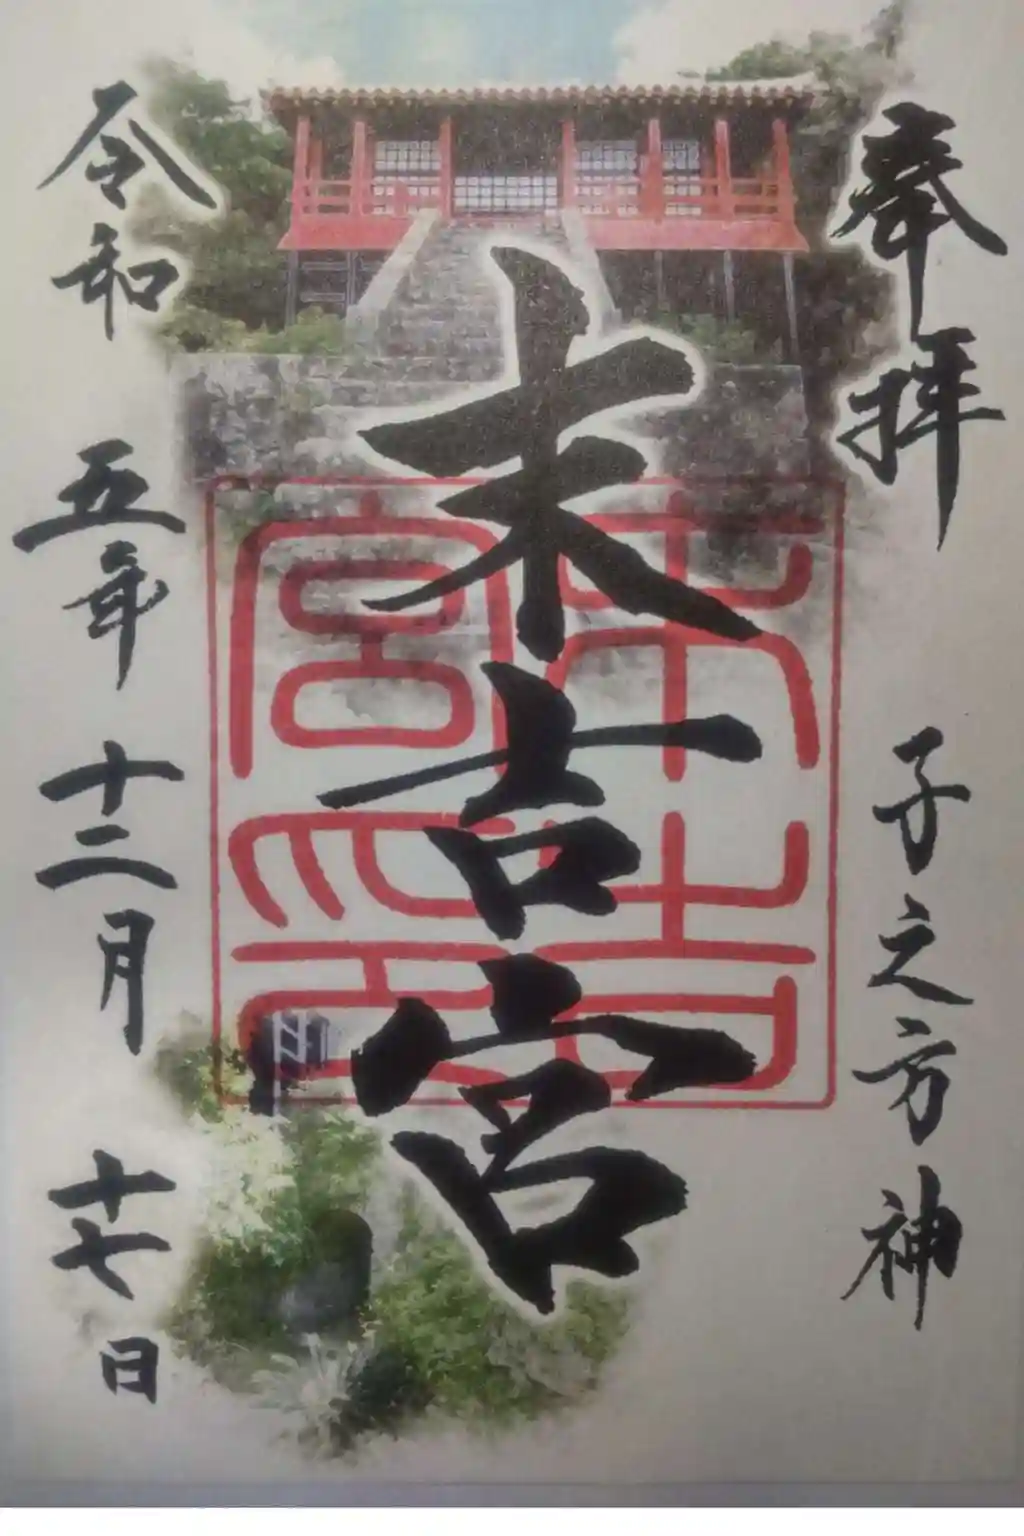 奉拝　子之方神
末吉宮
令和五年十二月十七日
末吉宮印